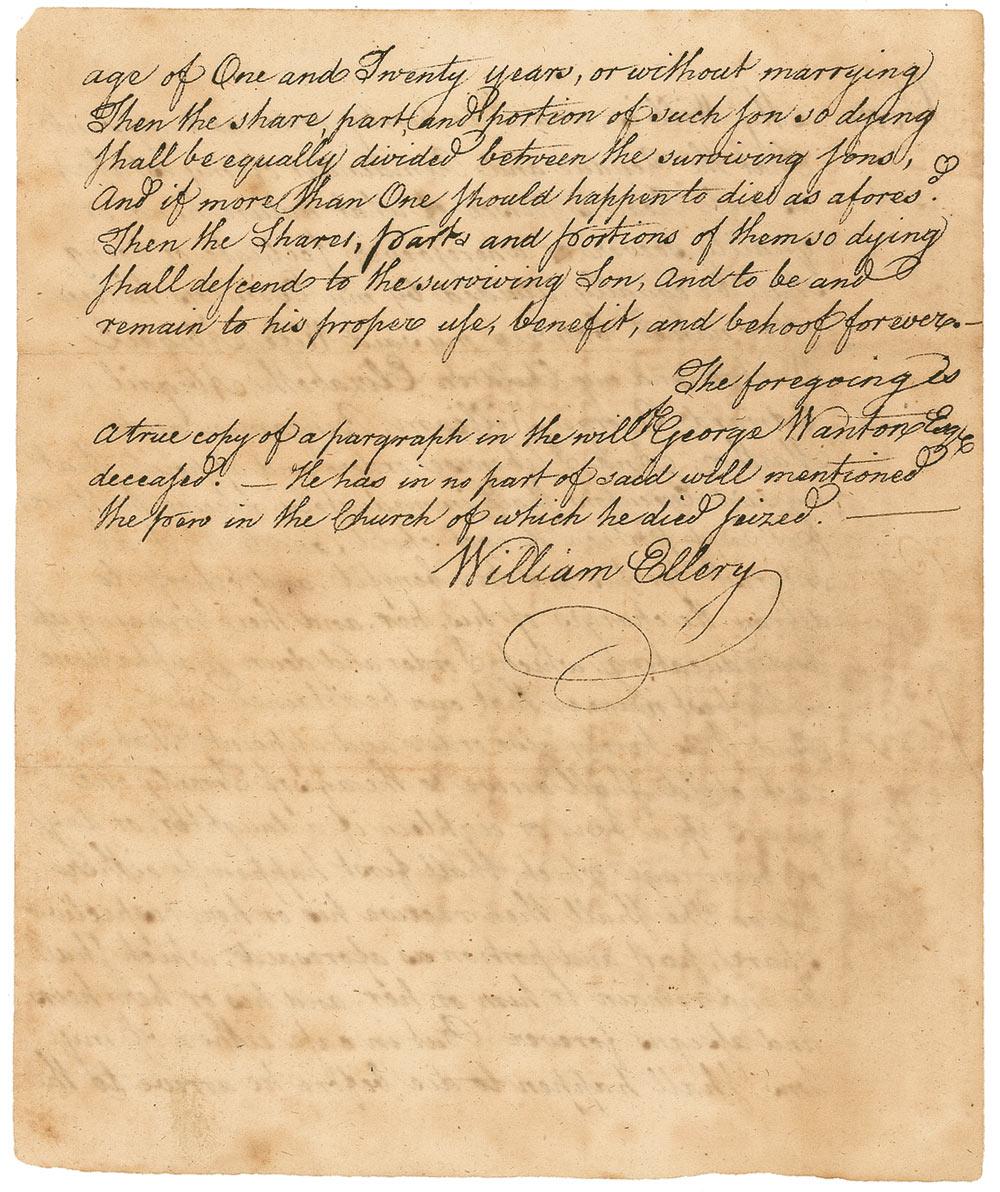 age of One and Twenty years, or without marrying
Then the share part, and portion of such son so dying
shall be equally divided between the surviving sons,
And if more than One should happen to die as afores.d
Then the Shares, parts and portions of them so dying
shall descend to the surviving Son, And to be and
remain to his proper use, benefit, and behoof forever.—
The foregoing is
a true copy of a pargraph in the will of George Wanton Esqr
deceased. — He has in no part of said will mentioned
the pew in the Church of which he died seized. —
William Ellery